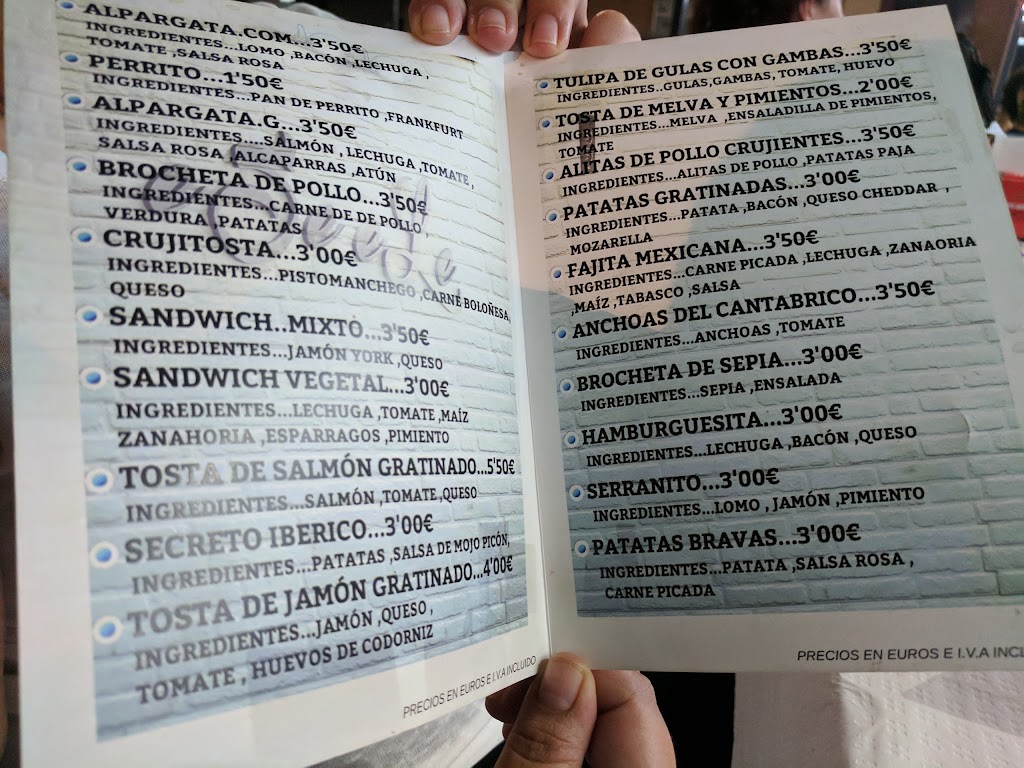 ALPARGATA.COM...3'50€
INGREDIENTES...LOMO ,BACÓN ,LECHUGA ,
TOMATE ,SALSA ROSA
PERRITO...1'50€
INGREDIENTES...PAN DE PERRITO ,FRANKFURT
ALPARGATA.G...3'50€
INGREDIENTES....SALMÓN , LECHUGA ,TOMATE ,
SALSA ROSA ,ALCAPARRAS ,ATÚN
BROCHETA DE POLLO...3'50€
INGREDIENTES...CARNE DE DE POLLO ,
VERDURA ,PATATAS
CRUJITOSTA...3'00€
INGREDIENTES...PISTOMANCHEGO ,CARNE BOLOÑESA,
QUESO
SANDWICH..MIXTO...3'50€
INGREDIENTES...JAMÓN YORK ,QUESO
SANDWICH VEGETAL...3'00€
INGREDIENTES...LECHUGA ,TOMATE ,MAÍZ
ZANAHORIA ,ESPARRAGOS ,PIMIENTO
TOSTA DE SALMÓN GRATINADO...5'50€
INGREDIENTES...SALMÓN ,TOMATE ,QUESO
SECRETO IBERICO...3'00€
INGREDIENTES...PATATAS ,SALSA DE MOJO PICÓN,
TOSTA DE JAMÓN GRATINADO...4'00€
INGREDIENTES...JAMÓN ,QUESO ,
TOMATE , HUEVOS DE CODORNIZ
PRECIOS EN EUROS E I.V.A INCLUIDO
TULIPA DE GULAS CON GAMBAS...3'50€
INGREDIENTES...GULAS,GAMBAS, TOMATE, HUEVO
TOSTA DE MELVA Y PIMIENTOS...2'00€
INGREDIENTES...MELVA ,ENSALADILLA DE PIMIENTOS,
TOMATE
ALITAS DE POLLO CRUJIENTES...3'50€
INGREDIENTES...ALITAS DE POLLO ,PATATAS PAJA
PATATAS GRATINADAS...3'00€
INGREDIENTES...PATATA ,BACÓN ,QUESO CHEDDAR ,
MOZARELLA
FAJITA MEXICANA...3'50€
INGREDIENTES...CARNE PICADA ,LECHUGA ,ZANAORIA
,MAÍZ ,TABASCO ,SALSA
ANCHOAS DEL CANTABRICO...3'50€
INGREDIENTES...ANCHOAS ,TOMATE
BROCHETA DE SEPIA...3'00€
INGREDIENTES...SEPIA ,ENSALADA
HAMBURGUESITA...3'00€
INGREDIENTES...LECHUGA ,BACÓN ,QUESO
SERRANITO...3'00€
INGREDIENTES...LOMO , JAMÓN ,PIMIENTO
PATATAS BRAVAS...3'00€
INGREDIENTES...PATATA ,SALSA ROSA ,
CARNE PICADA
PRECIOS EN EUROS E I.V.A INCL